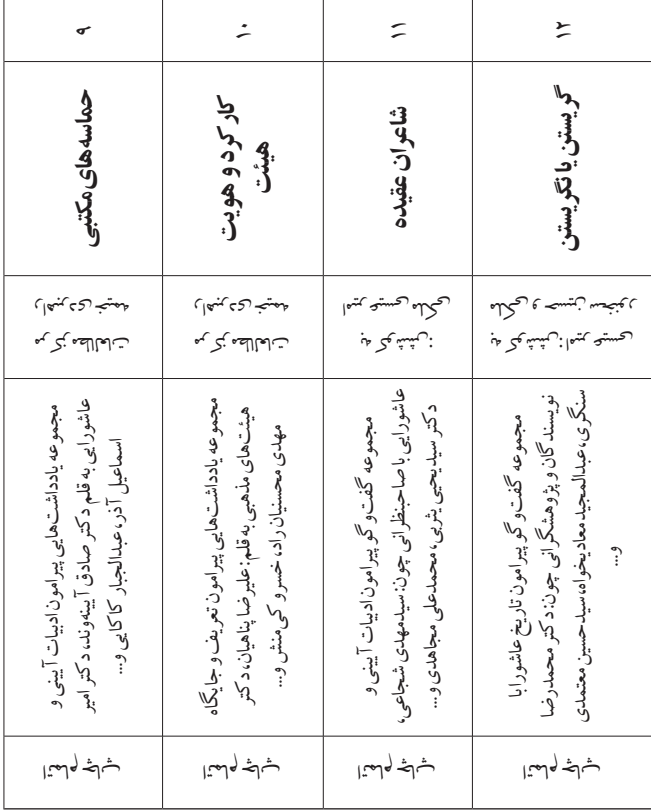 ۹
حماسه‌های مکتبی
مرکز مطالعات
راهبردی خیمه
مجموعه یادداشت‌هایی پیرامون ادبیات آیینی و
عاشورایی به قلم دکتر صادق آیینه‌وند، دکتر امیر
اسماعیل آذر، عبدالجبار کاکایی و...
اتمام چاپ
۱۰
کارکرد و هویت
هیئت
مرکز مطالعات
راهبردی خیمه
مجموعه یادداشت‌هایی پیرامون تعریف و جایگاه
هیئت‌های مذهبی به قلم: علیرضا پناهیان، دکتر
مهدی محسنیان راد، خسرو کی منش و...
اتمام چاپ
۱۱
شاعران عقیده
به کوشش:
امیر عیسی ملکی
مجموعه گفت‌و گو پیرامون ادبیات آیینی و
عاشورایی با صاحبنظرانی چون: سیدمهدی شجاعی،
دکتر سید یحیی یثربی، محمدعلی مجاهدی و...
اتمام چاپ
۱۲
گریستن یا نگریستن
به کوشش: امیر عیسی
ملکی و حسین سخنور
مجموعه گفت‌و گو پیرامون تاریخ عاشورا با
نویسندگان و پژوهشگرانی چون: دکتر محمدرضا
سنگری، عبدالمجید معادیخواه، سید حسین معتمدی
و...
اتمام چاپ